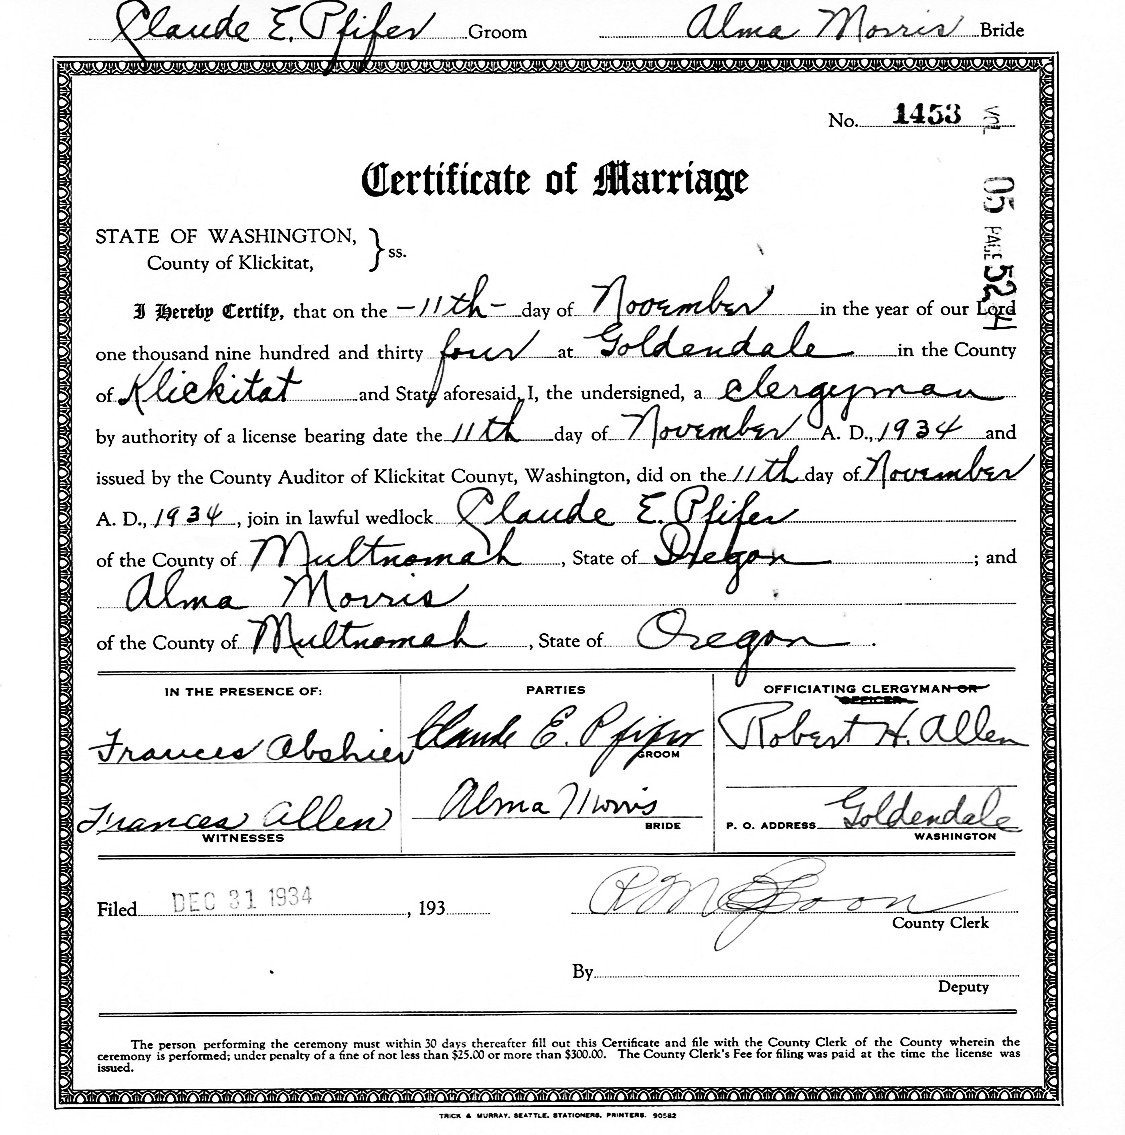 Claude E. Pfifer Groom Alma Morris Bride
No. 1453
VOL 05 PAGE 524
Certificate of Marriage
STATE OF WASHINGTON,
County of Klickitat, } ss.
I Hereby Certify, that on the -11th- day of November in the year of our Lord
one thousand nine hundred and thirty four at Goldendale in the County
of Klickitat and State aforesaid, I, the undersigned, a clergyman
by authority of a license bearing date the 11th day of November A. D., 1934 and
issued by the County Auditor of Klickitat Counyt, Washington, did on the 11th day of November
A. D., 1934, join in lawful wedlock Claude E. Pfifer
of the County of Multnomah, State of Oregon; and
Alma Morris
of the County of Multnomah, State of Oregon.
IN THE PRESENCE OF:
Frances Abshier
Frances Allen
WITNESSES
PARTIES
Claude E. Pfifer
GROOM
Alma Morris
BRIDE
OFFICIATING CLERGYMAN OR
OFFICER
Robert H. Allen
P. O. ADDRESS Goldendale
WASHINGTON
Filed DEC 31 1934, 193
County Clerk
By
Deputy
The person performing the ceremony must within 30 days thereafter fill out this Certificate and file with the County Clerk of the County wherein the
ceremony is performed; under penalty of a fine of not less than $25.00 or more than $300.00. The County Clerk's Fee for filing was paid at the time the license was
issued.
TRICK & MURRAY, SEATTLE, STATIONERS, PRINTERS. 90582